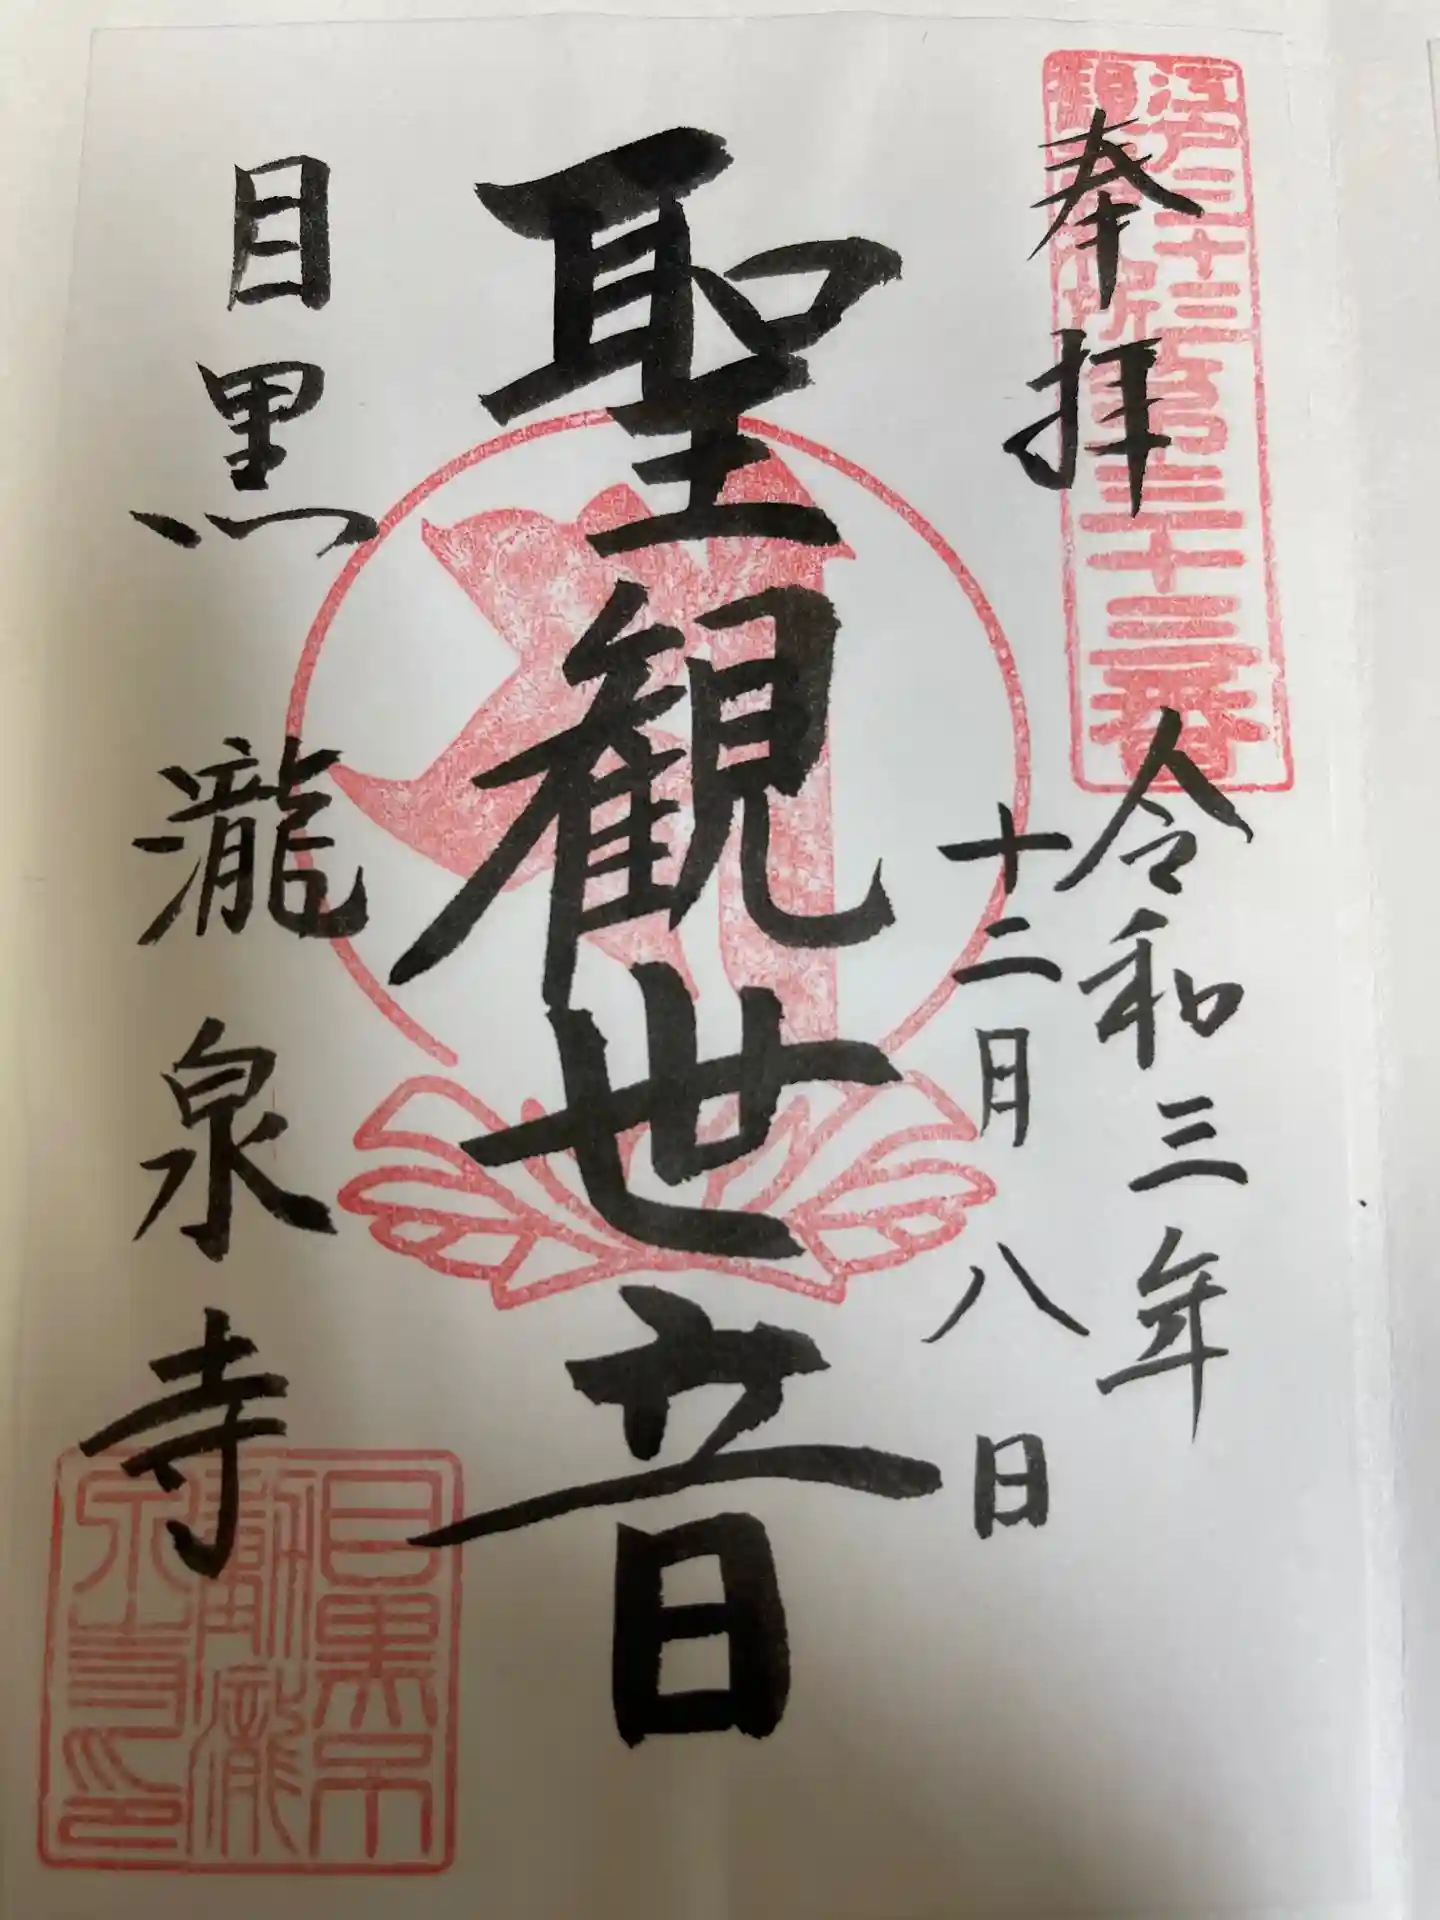 江戸三十三
観音札所第三十三番
奉拝
令和三年
十二月八日
聖観世音
目黒 瀧泉寺
目黒不
動瀧
泉寺印